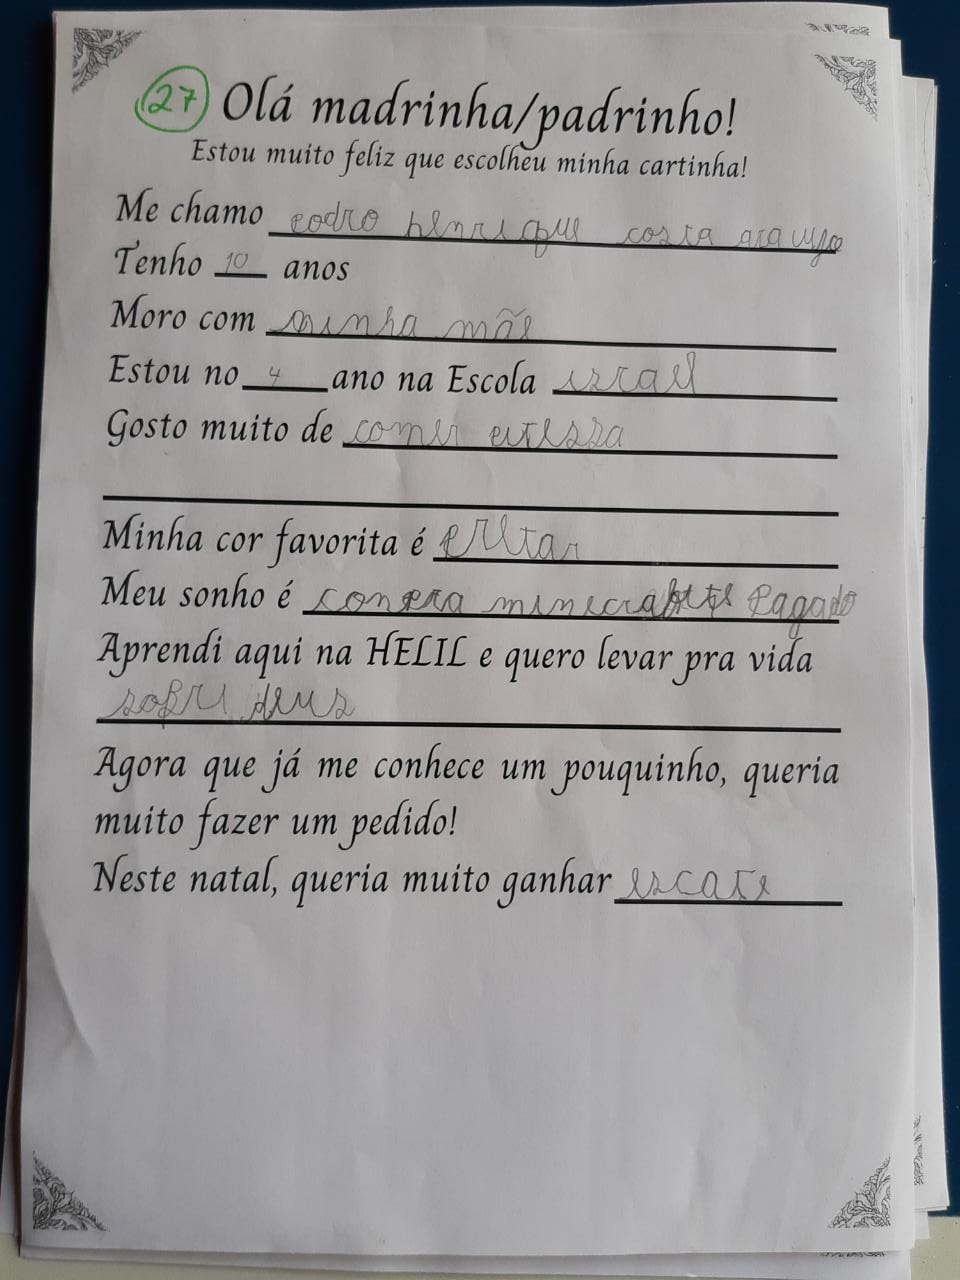 27 Olá madrinha/padrinho!
Estou muito feliz que escolheu minha cartinha!
Me chamo pedro henrique costa araujo
Tenho 10 anos
Moro com minha mãe
Estou no 4 ano na Escola israel
Gosto muito de comer
Minha cor favorita é
Meu sonho é pagado
Aprendi aqui na HELIL e quero levar pra vida
sobri deus
Agora que já me conhece um pouquinho, queria
muito fazer um pedido!
Neste natal, queria muito ganhar escate